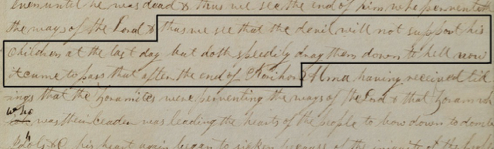 even until he was dead & thus we see the end of him who perverteth
the ways of the Lord & thus we see that the devil will not support his
Children at the last day but doth speedily drag them down to hell now
it came to pass that after the end of Korihor Alma having received tid
ings that the Zoramites were perverting the ways of the Lord & that Zoram wh
who was their leader was leading the hearts of the people to bow down to dumb
his heart again began to sicken because of the iniquity of the people